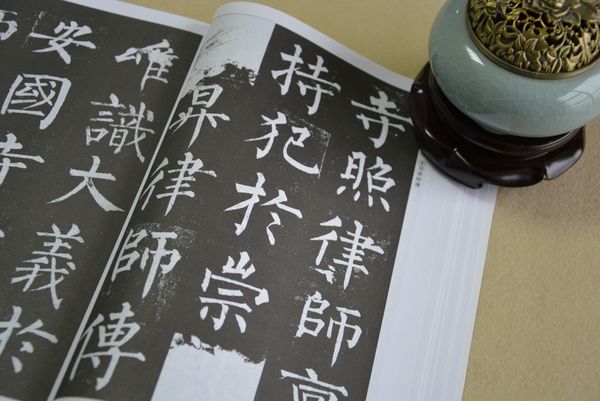 寺照律師稟
持犯於崇
昇律師傳
唯識大義於
安國寺